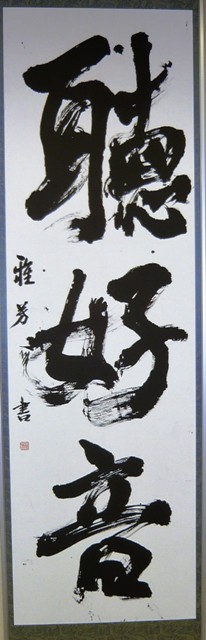 聴好音
雅芳書